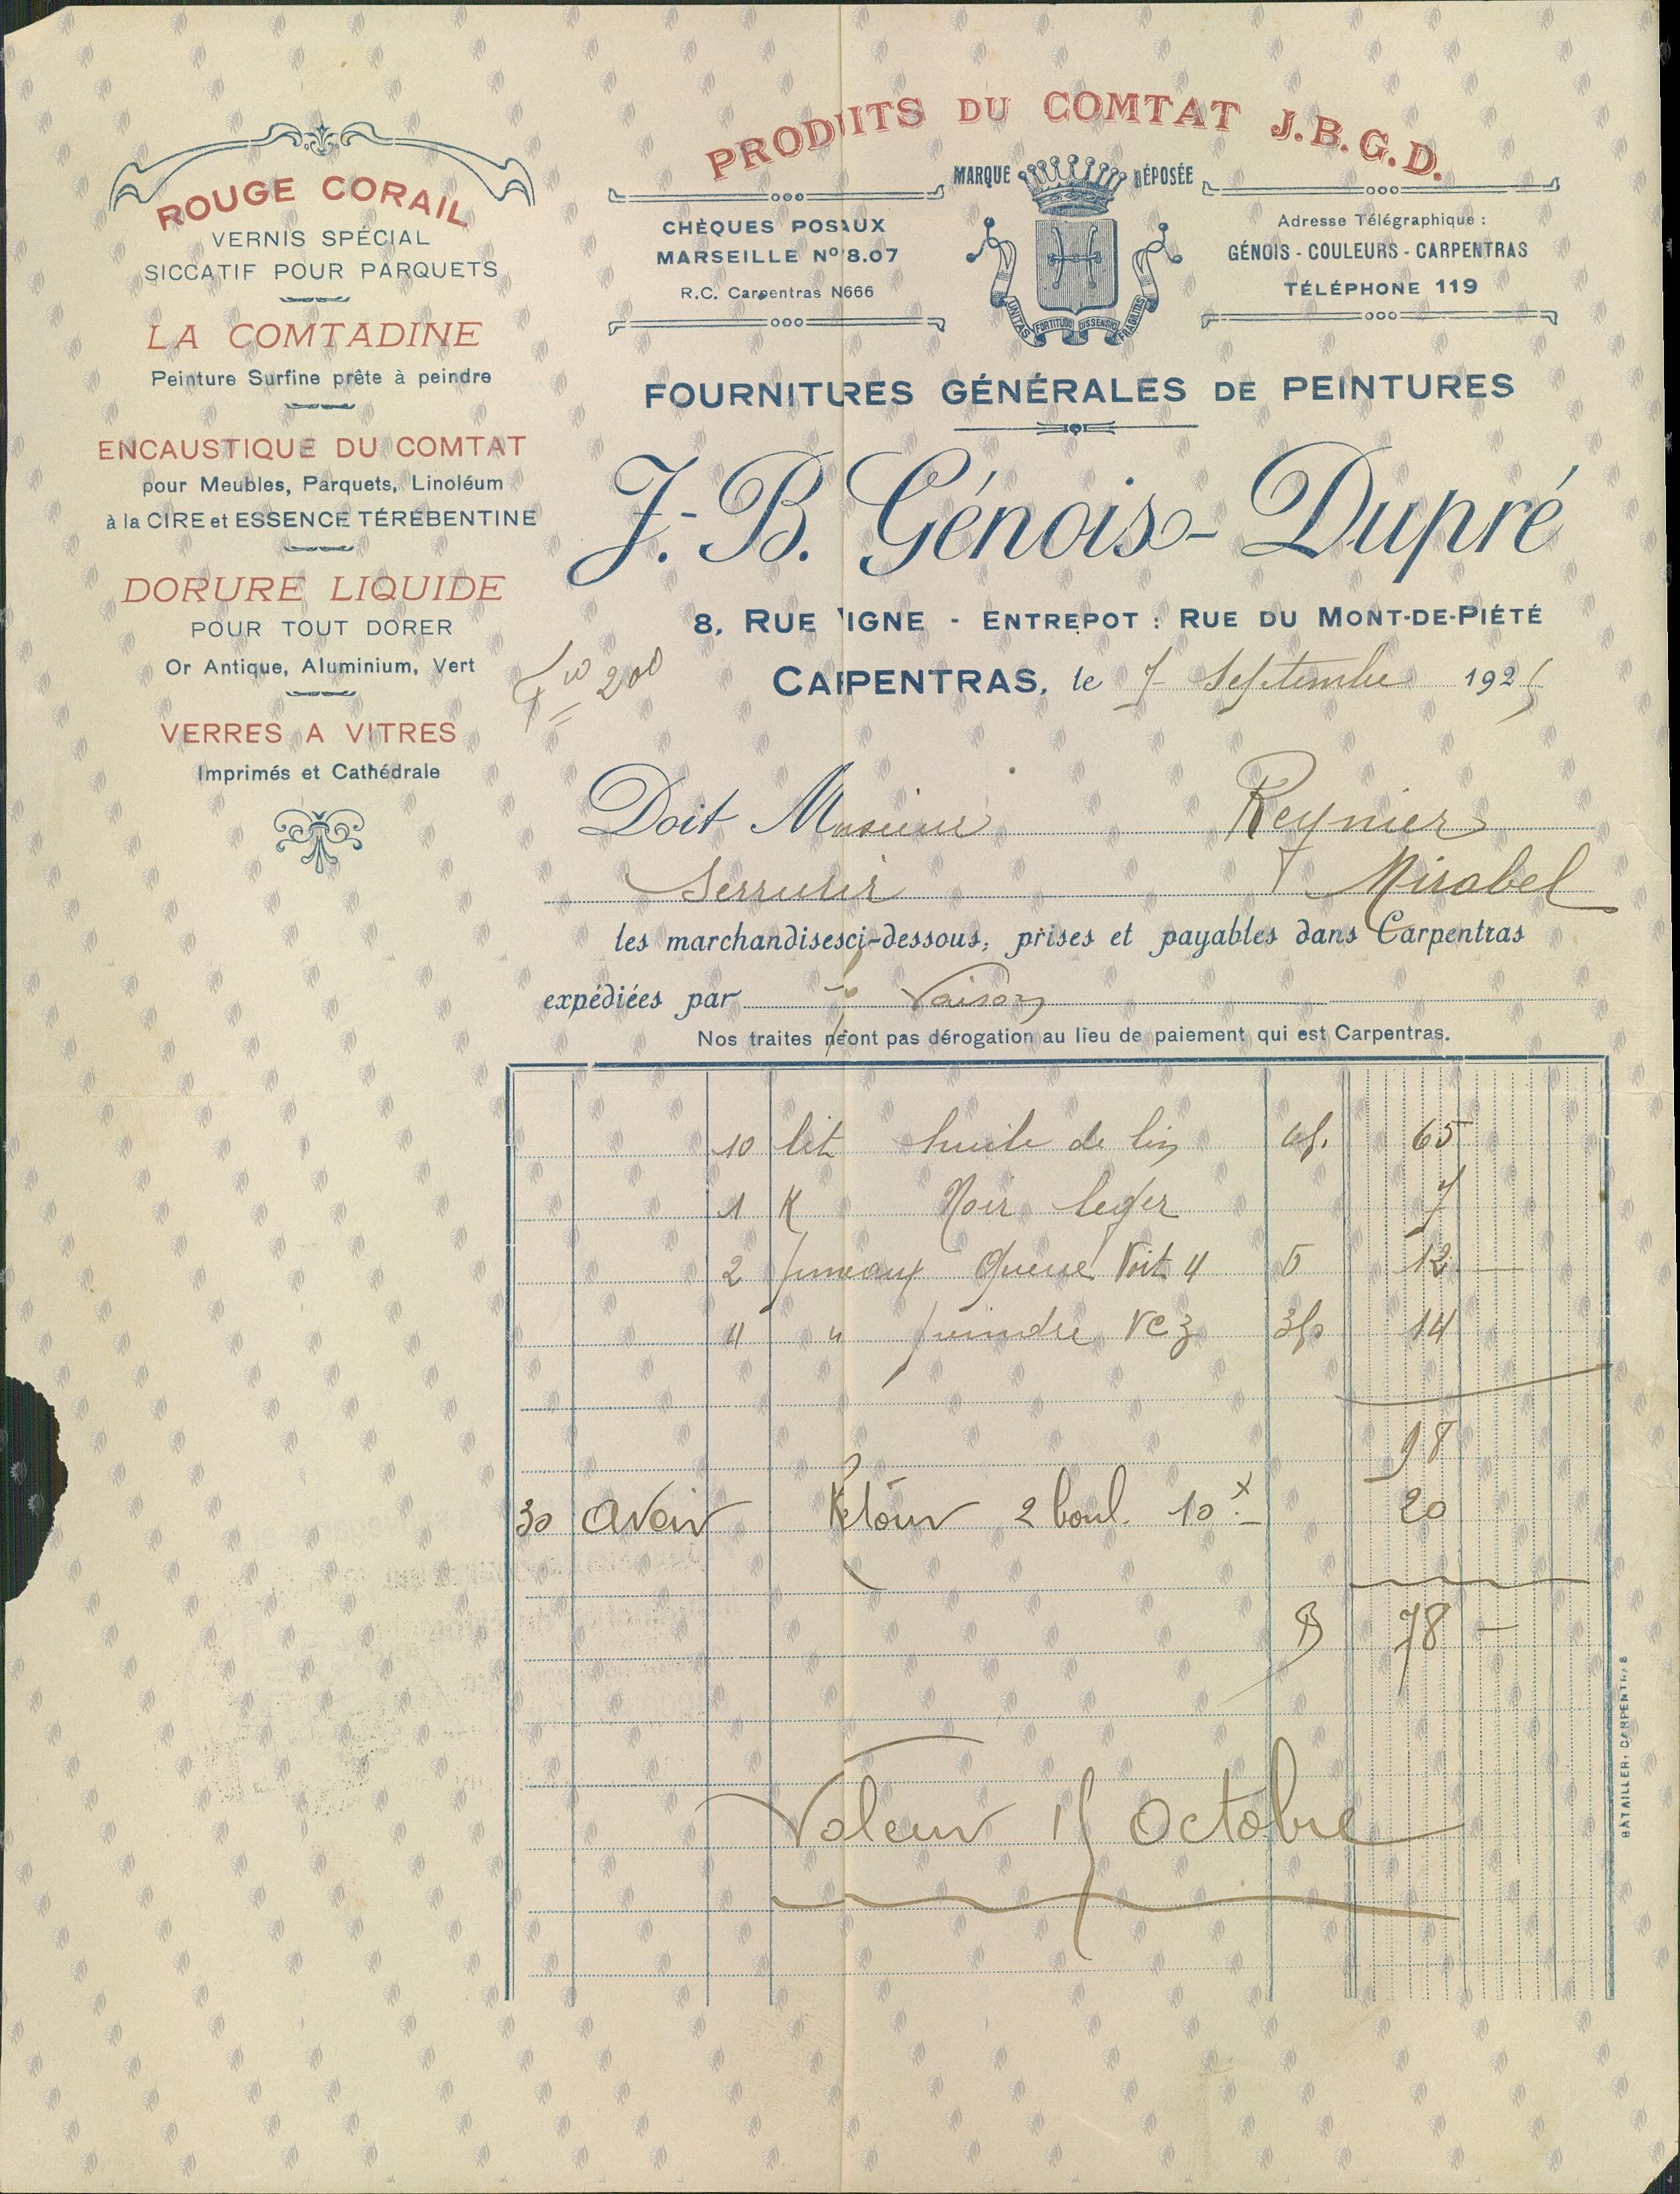 ROUGE CORAIL
VERNIS SPÉCIAL
SICCATIF POUR PARQUETS
LA COMTADINE
Peinture Surfine prête à peindre
ENCAUSTIQUE DU COMTAT
pour Meubles, Parquets, Linoléum
à la CIRE et ESSENCE TÉRÉBENTINE
DORURE LIQUIDE
POUR TOUT DORER
Or Antique, Aluminium, Vert
VERRES A VITRES
Imprimés et Cathédrale
PRODUITS DU COMTAT J.B.G.D.
MARQUE DÉPOSÉE
CHÈQUES POSTAUX
MARSEILLE Nº 8.07
R.C. Carpentras N666
UNITAS FORTITUDO DISSENSIO FRAGILITAS
Adresse Télégraphique :
GÉNOIS - COULEURS - CARPENTRAS
TÉLÉPHONE 119
FOURNITURES GÉNÉRALES DE PEINTURES
J.-B. Génois-Dupré
8, RUE VIGNE - ENTREPOT : RUE DU MONT-DE-PIÉTÉ
200
CARPENTRAS, le 7 Septembre 1925
Doit Monsieur Reynier
Serrurier Mirabel
les marchandises ci-dessous, prises et payables dans Carpentras
expédiées par Vaison
Nos traites ne font pas dérogation au lieu de paiement qui est Carpentras.
10 lit huile de lin 65
1 K Noir leger 7
2 queue 4 12 —
4 " 14
98
30 Avoir Retour 2 bonb. 10 20
78 —
Valeur 15 Octobre
BATAILLER, CARPENTRAS